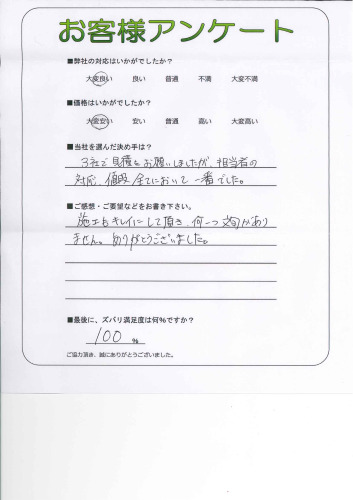 お客様アンケート
■弊社の対応はいかがでしたか？
大変良い 良い 普通 不満 大変不満
■価格はいかがでしたか？
大変安い 安い 普通 高い 大変高い
■当社を選んだ決め手は？
3社で見積をお願いしましたが、担当者の
対応、値段全てにおいて一番でした。
■ご感想・ご要望などをお書き下さい。
施工もキレイにして頂き、何一つ文句があり
ません。ありがとうございました。
■最後に、ズバリ満足度は何%ですか？
100 %
ご協力頂き、誠にありがとうございました。